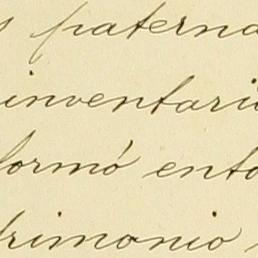 s paterna
inventari
formó ento
rimonio